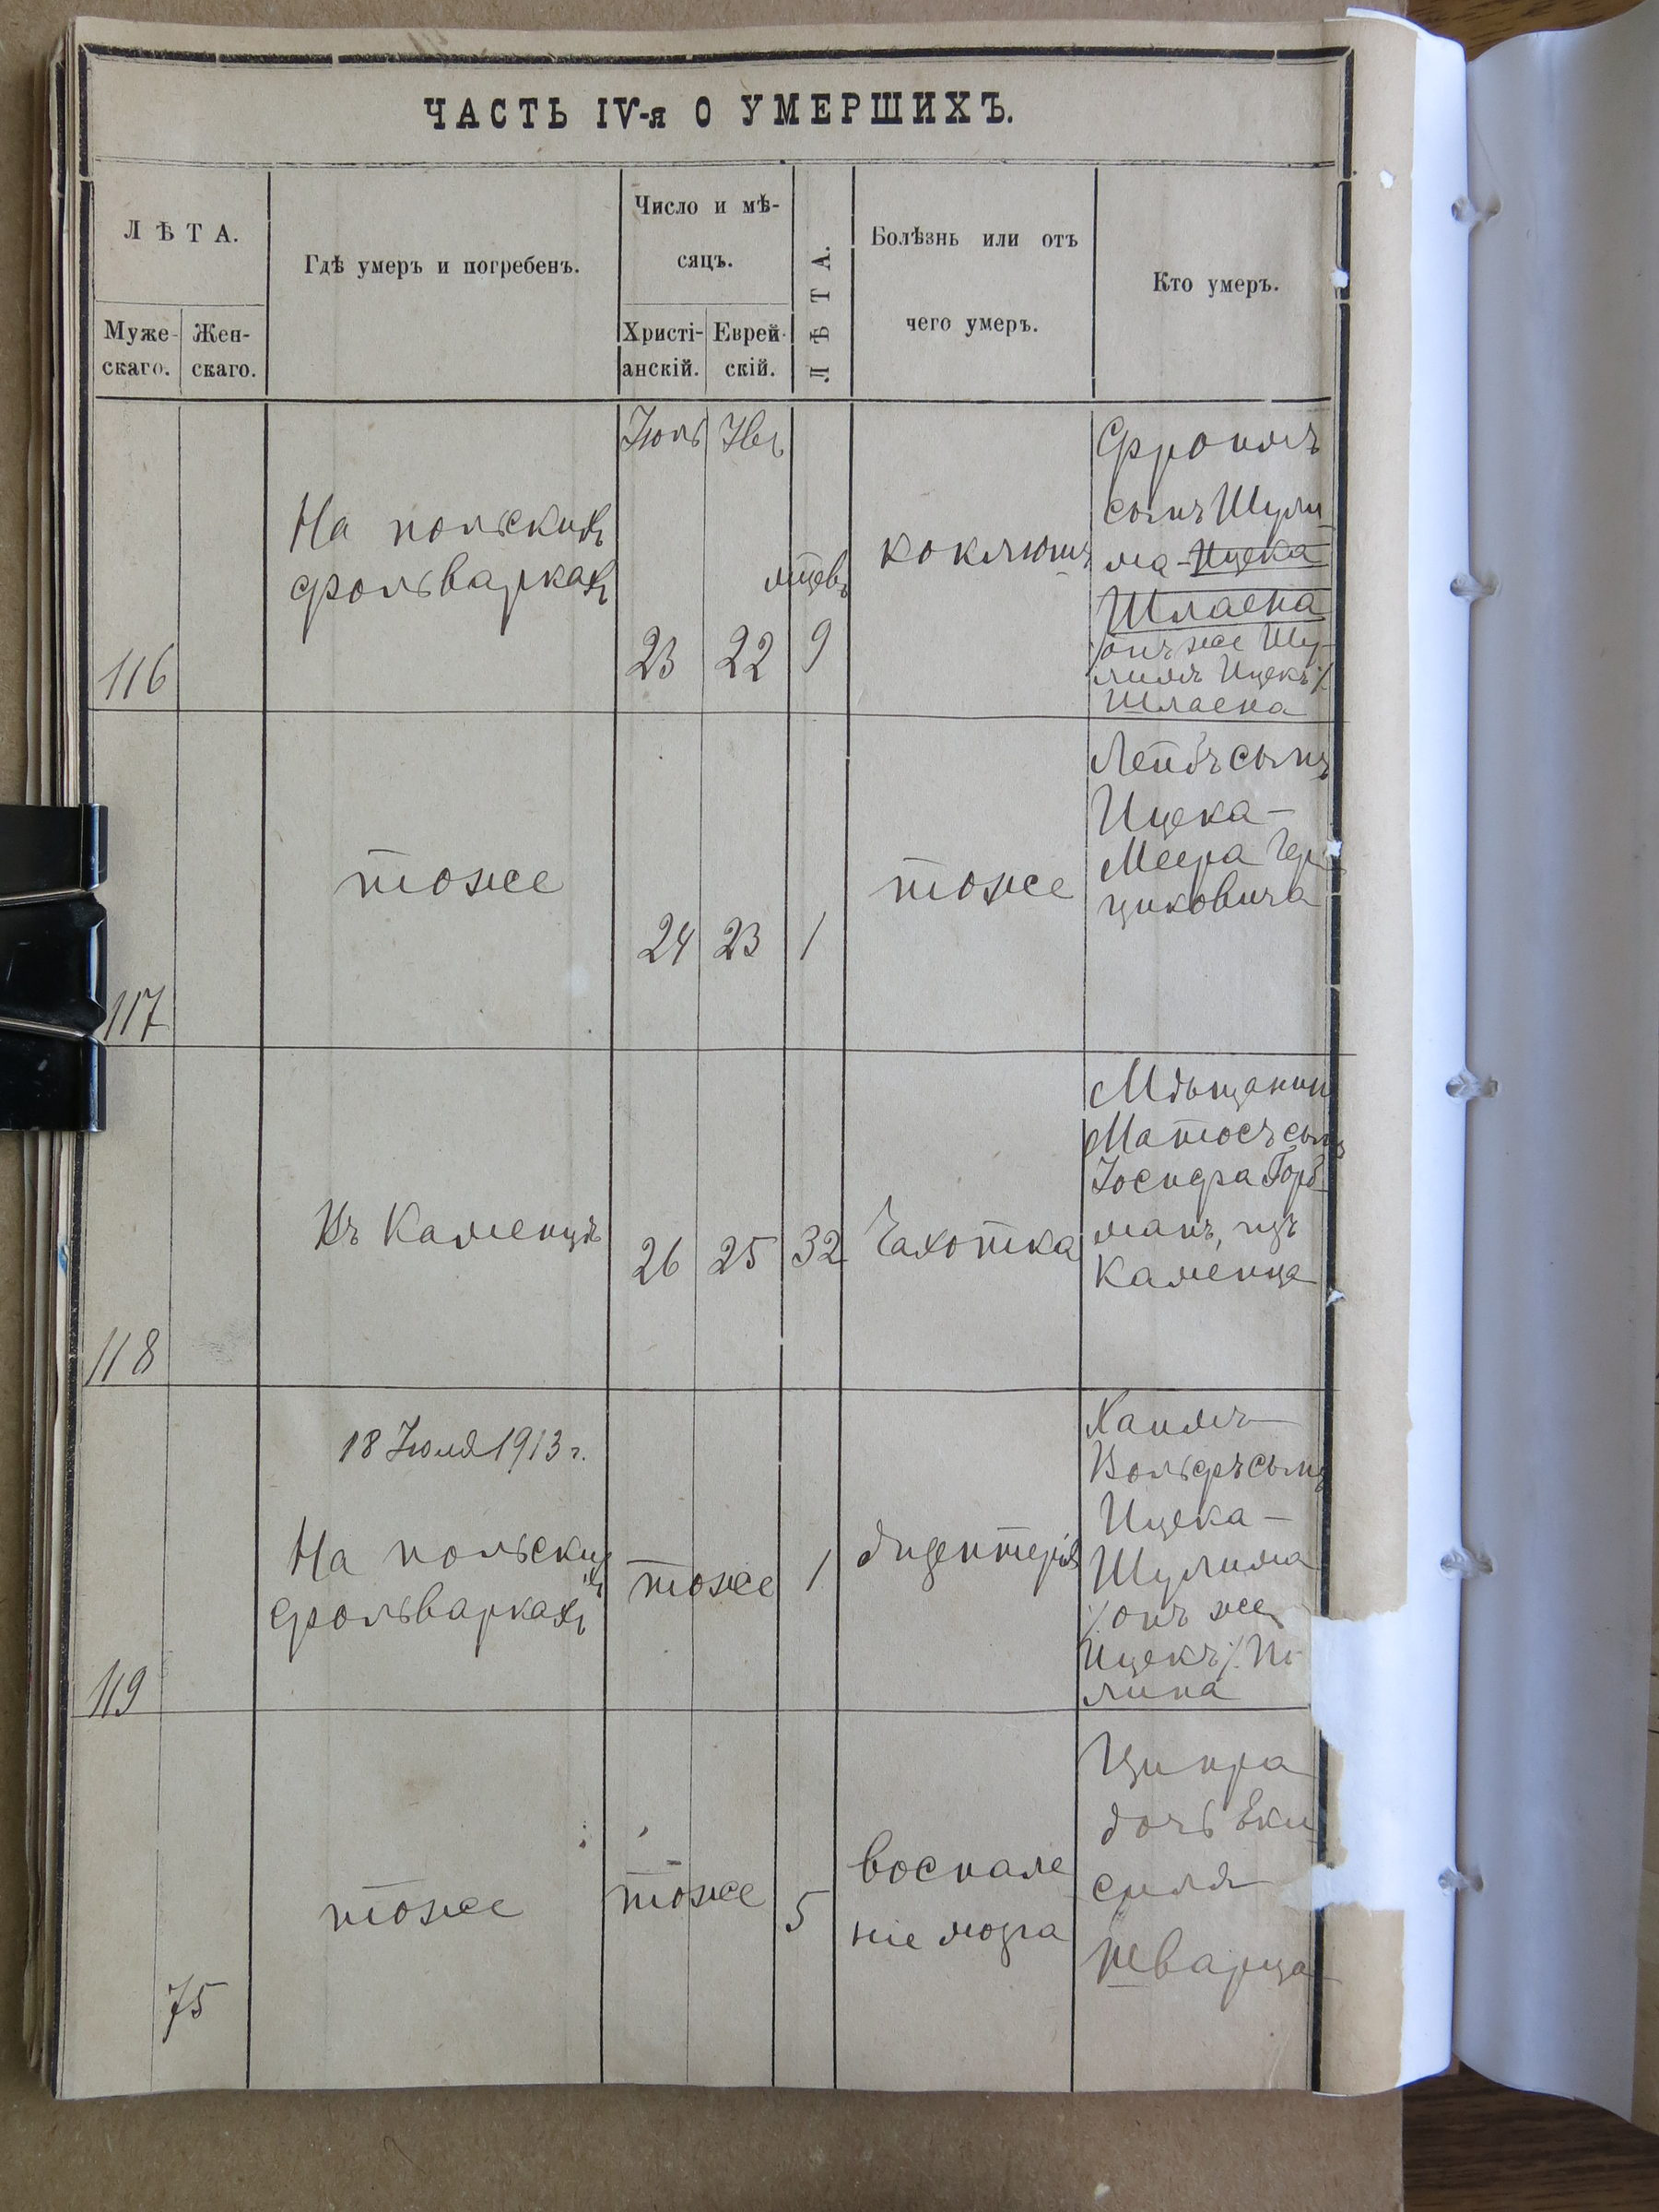 ЧАСТЬ IV-я О УМЕРШИХЪ.
ЛѢТА.
Муже-
скаго.
Жен-
скаго.
Гдѣ умеръ и погребенъ.
Число и мѣ-
сяцъ.
Христі-
анскій.
Еврей-
скій.
ЛѢТА.
Болѣзнь или отъ
чего умеръ.
Кто умеръ.
116
На польскихъ
фольваркахъ
Іюль
23
22
мѣцевъ
9
коклюшъ
Фроимъ
сынъ Шули-
ма-Ицека
Шлаена
/онъ же Шу-
лимъ Ицекъ/
Шлаена
117
тоже
24
23
1
тоже
Лейбъ сынъ
Ицека-
Меера Гер-
цисковича
118
Въ Каменцѣ
26
25
32
Чахотка
Мѣщанинъ
Матосъ сынъ
Іосифа Горб-
манъ, изъ
Каменца
119
18 Іюля 1913 г.
На польскихъ
фольваркахъ
тоже
1
дизентерія
Хаимъ-
Вольфъ сынъ
Ицека-
Шулима
/онъ же
Ицекъ/
75
тоже
тоже
5
воспале
ніе мозга
Ципра
дочь Еки-
силя
Шварца